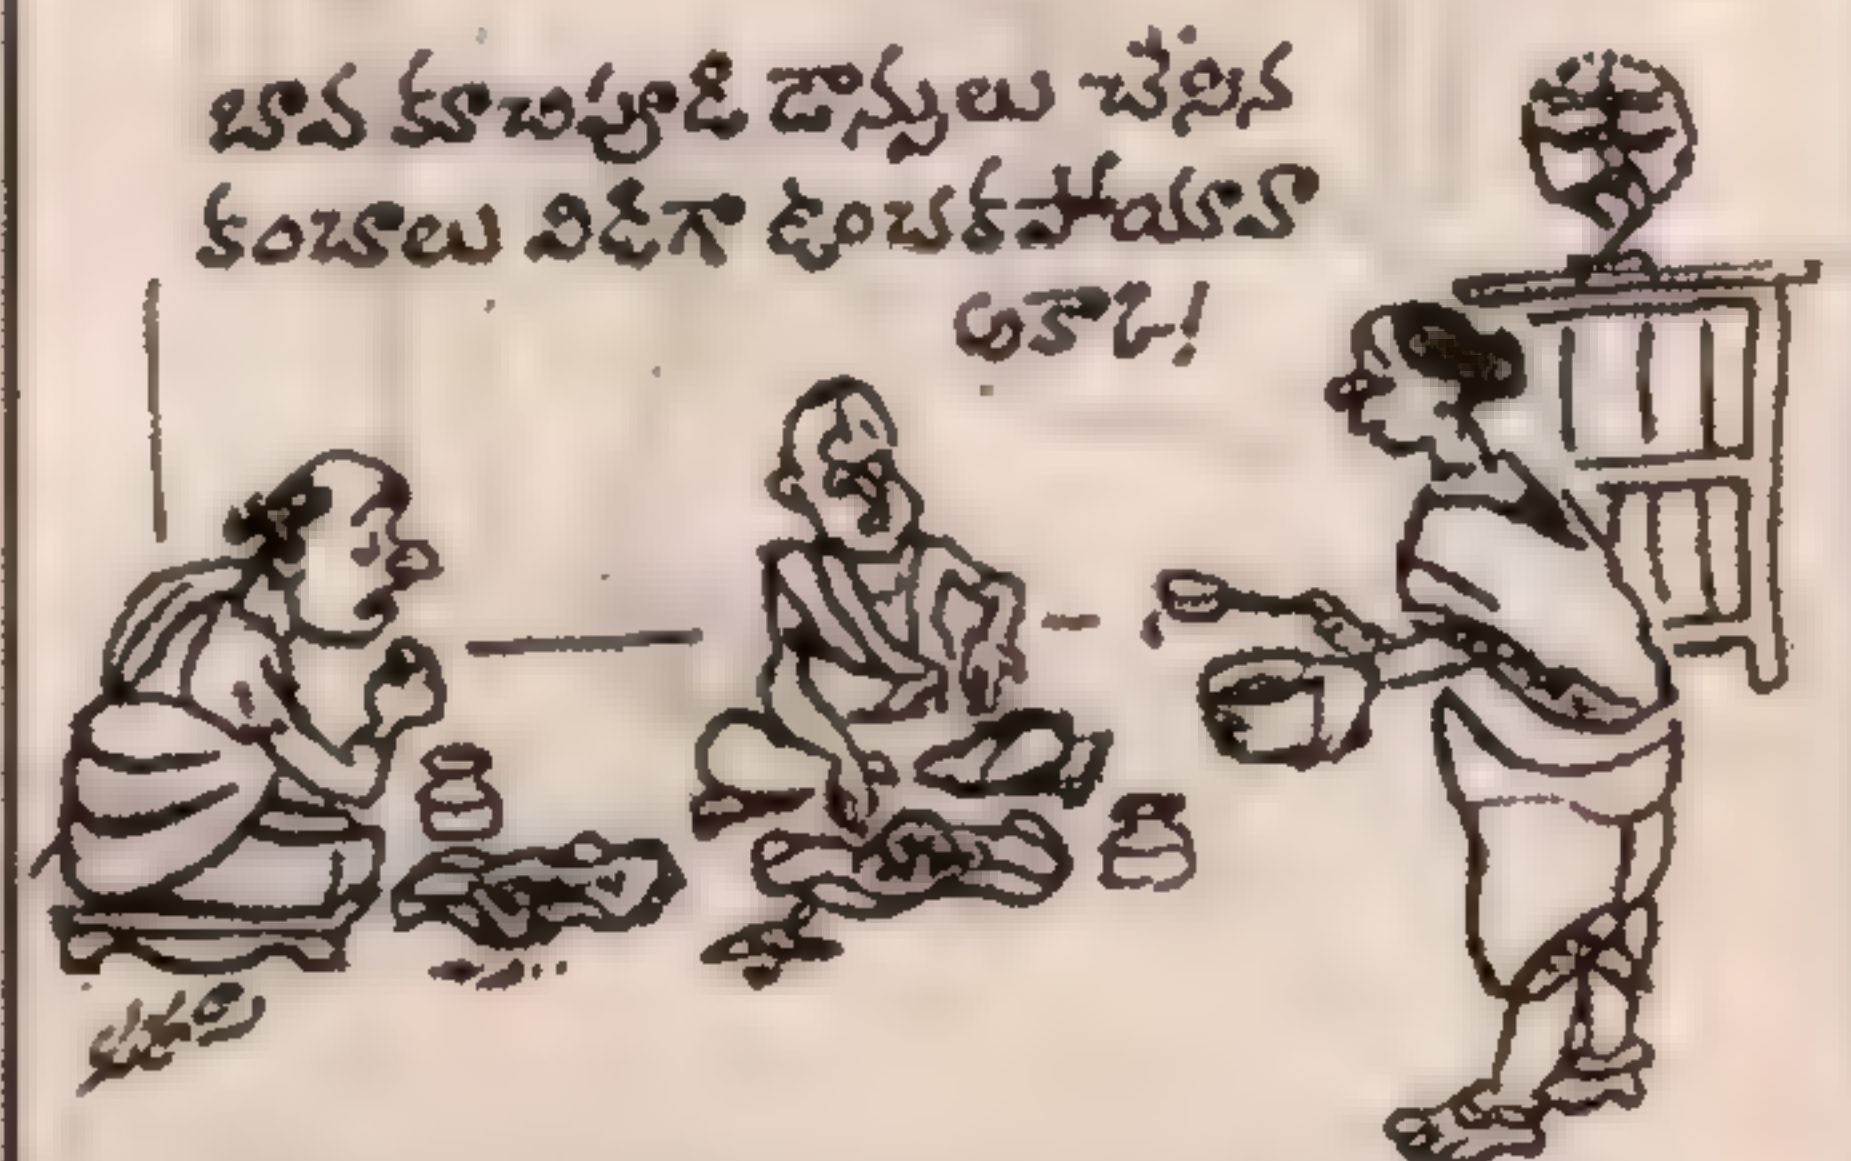 బావ కూచిపూడి డాన్సులు చేసిన
కంబాలు విడిగా ఉంచకపోయావా
అకాఽ!